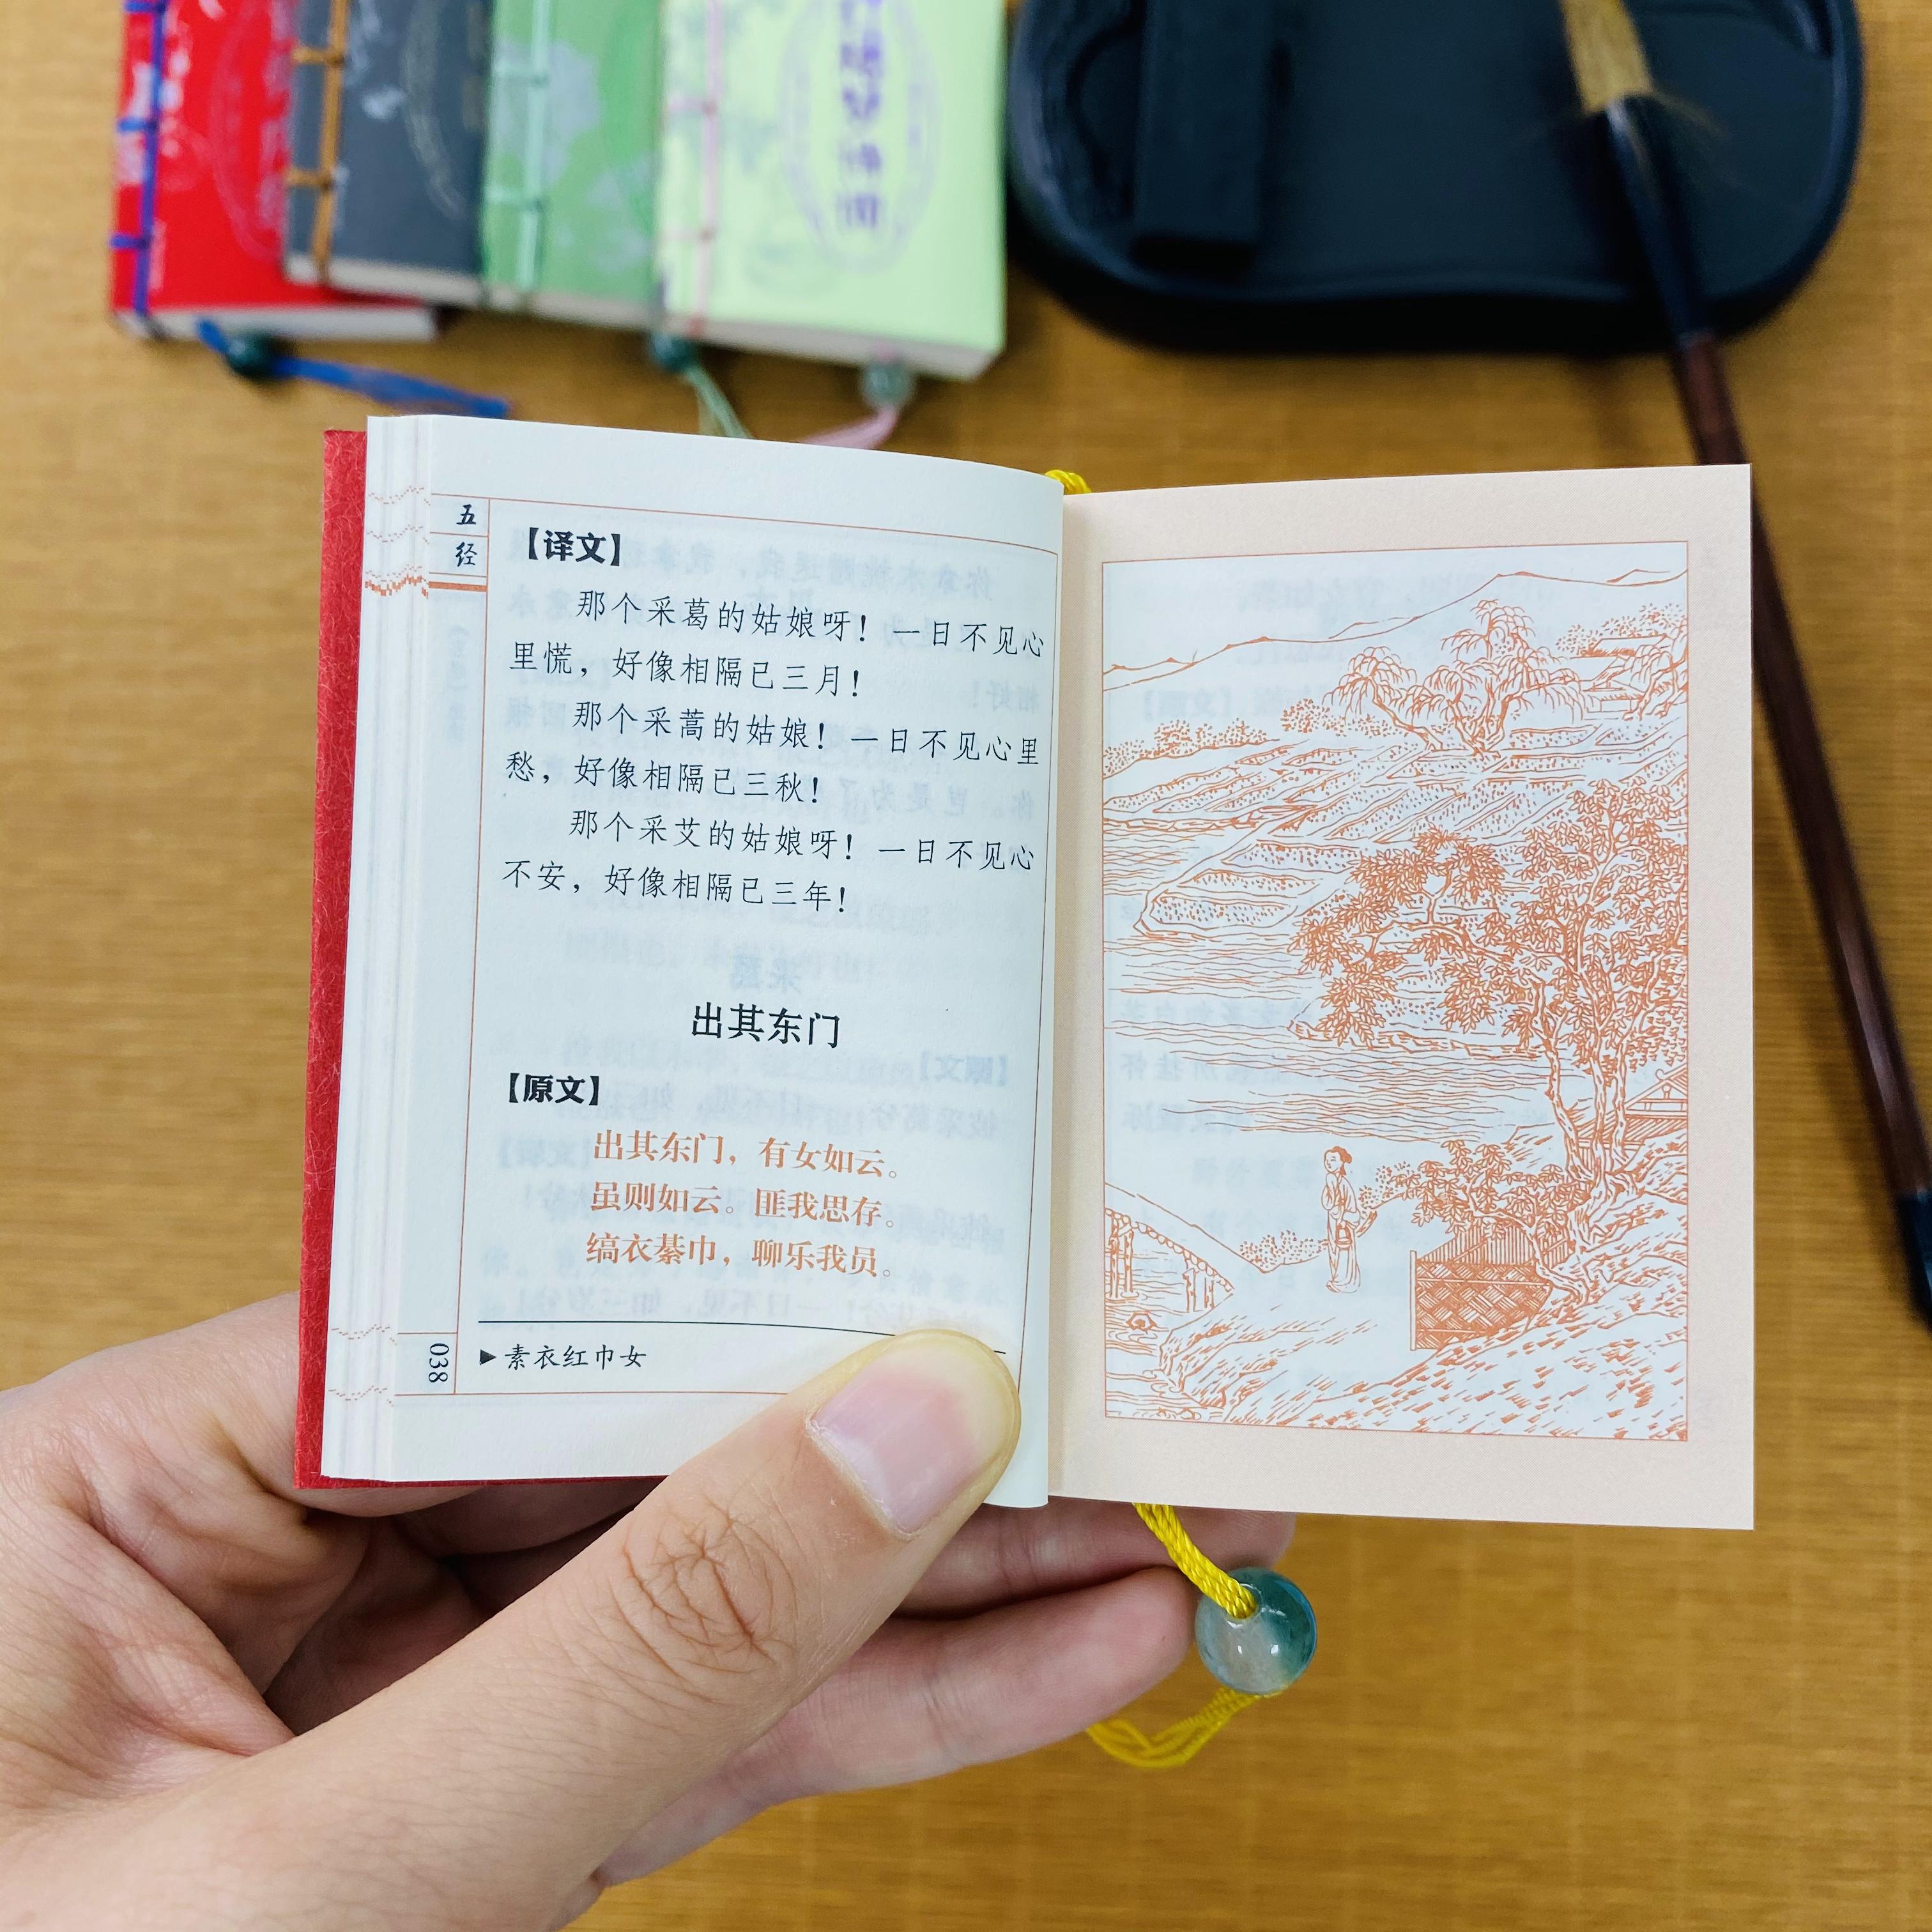 五
经
【译文】
那个采葛的姑娘呀！一日不见心
里慌，好像相隔已三月！
那个采蒿的姑娘！一日不见心里
愁，好像相隔已三秋！
那个采艾的姑娘呀！一日不见心
不安，好像相隔已三年！
出其东门
【原文】
出其东门，有女如云。
虽则如云。匪我思存。
缟衣綦巾，聊乐我员。
▶素衣红巾女
038